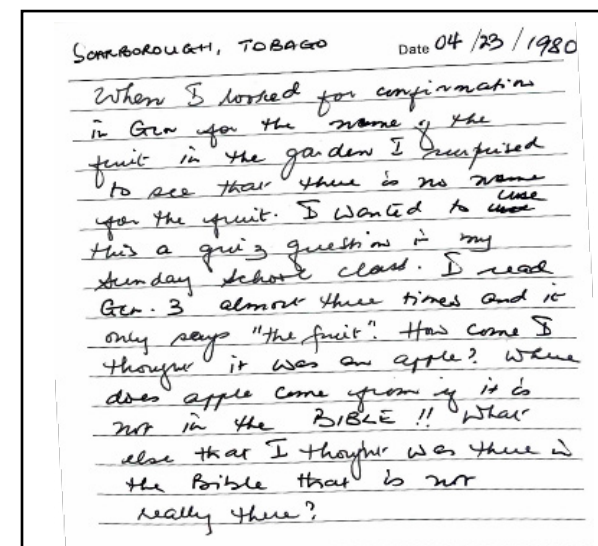 SCARBOROUGH, TOBAGO Date 04/23/1980
When I looked for confirmation
in Gen for the name of the
fruit in the garden I surprised
to see that there is no name
for the fruit. I wanted to use
this a quiz question in my
Sunday School class. I read
Gen. 3 almost three times and it
only says "the fruit". How come I
thought it was an apple? Where
does apple come from if it is
not in the BIBLE !! What
else that I thought was there in
the Bible that is not
really there?